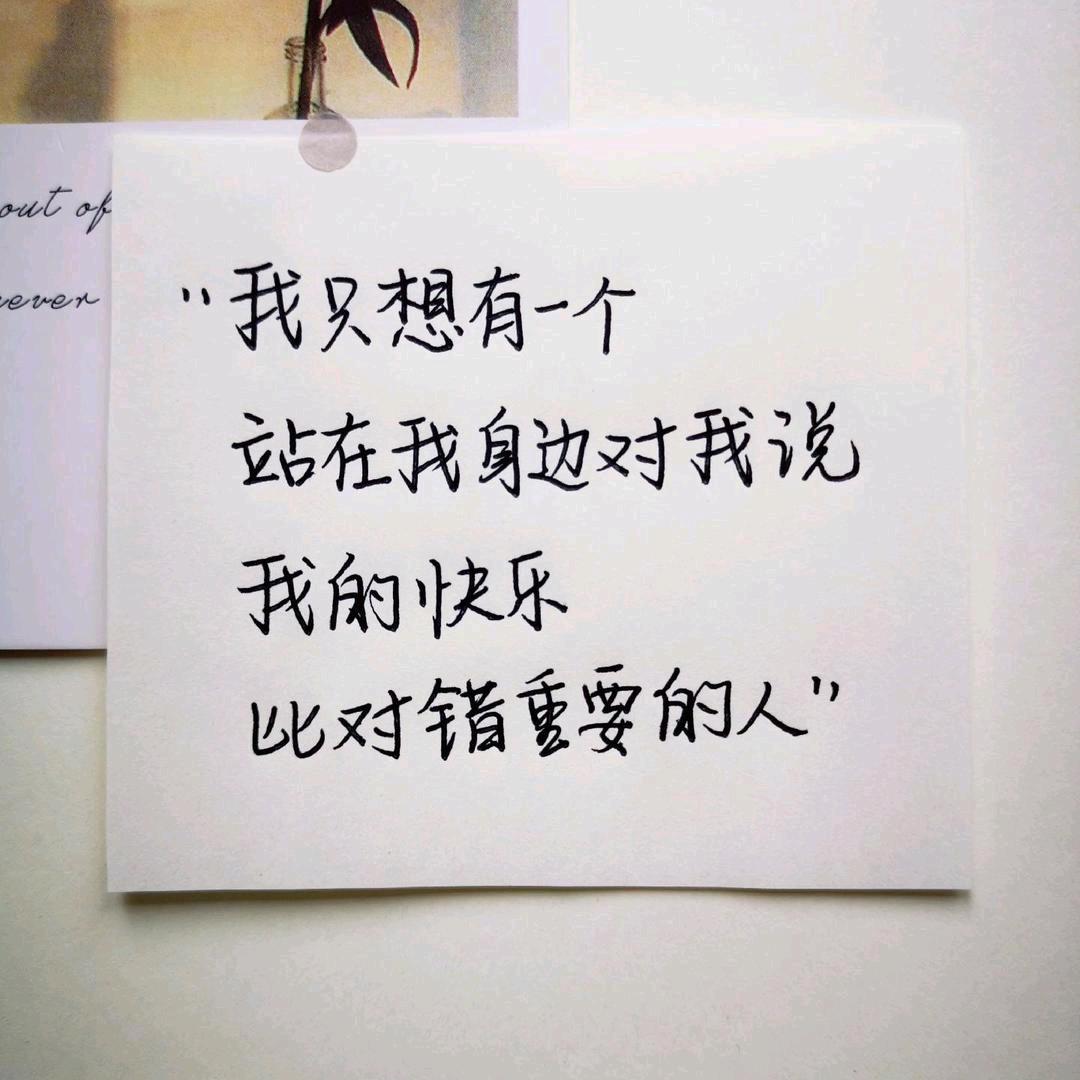 out of
"我只想有一个
站在我身边对我说
我的快乐
比对错重要的人"